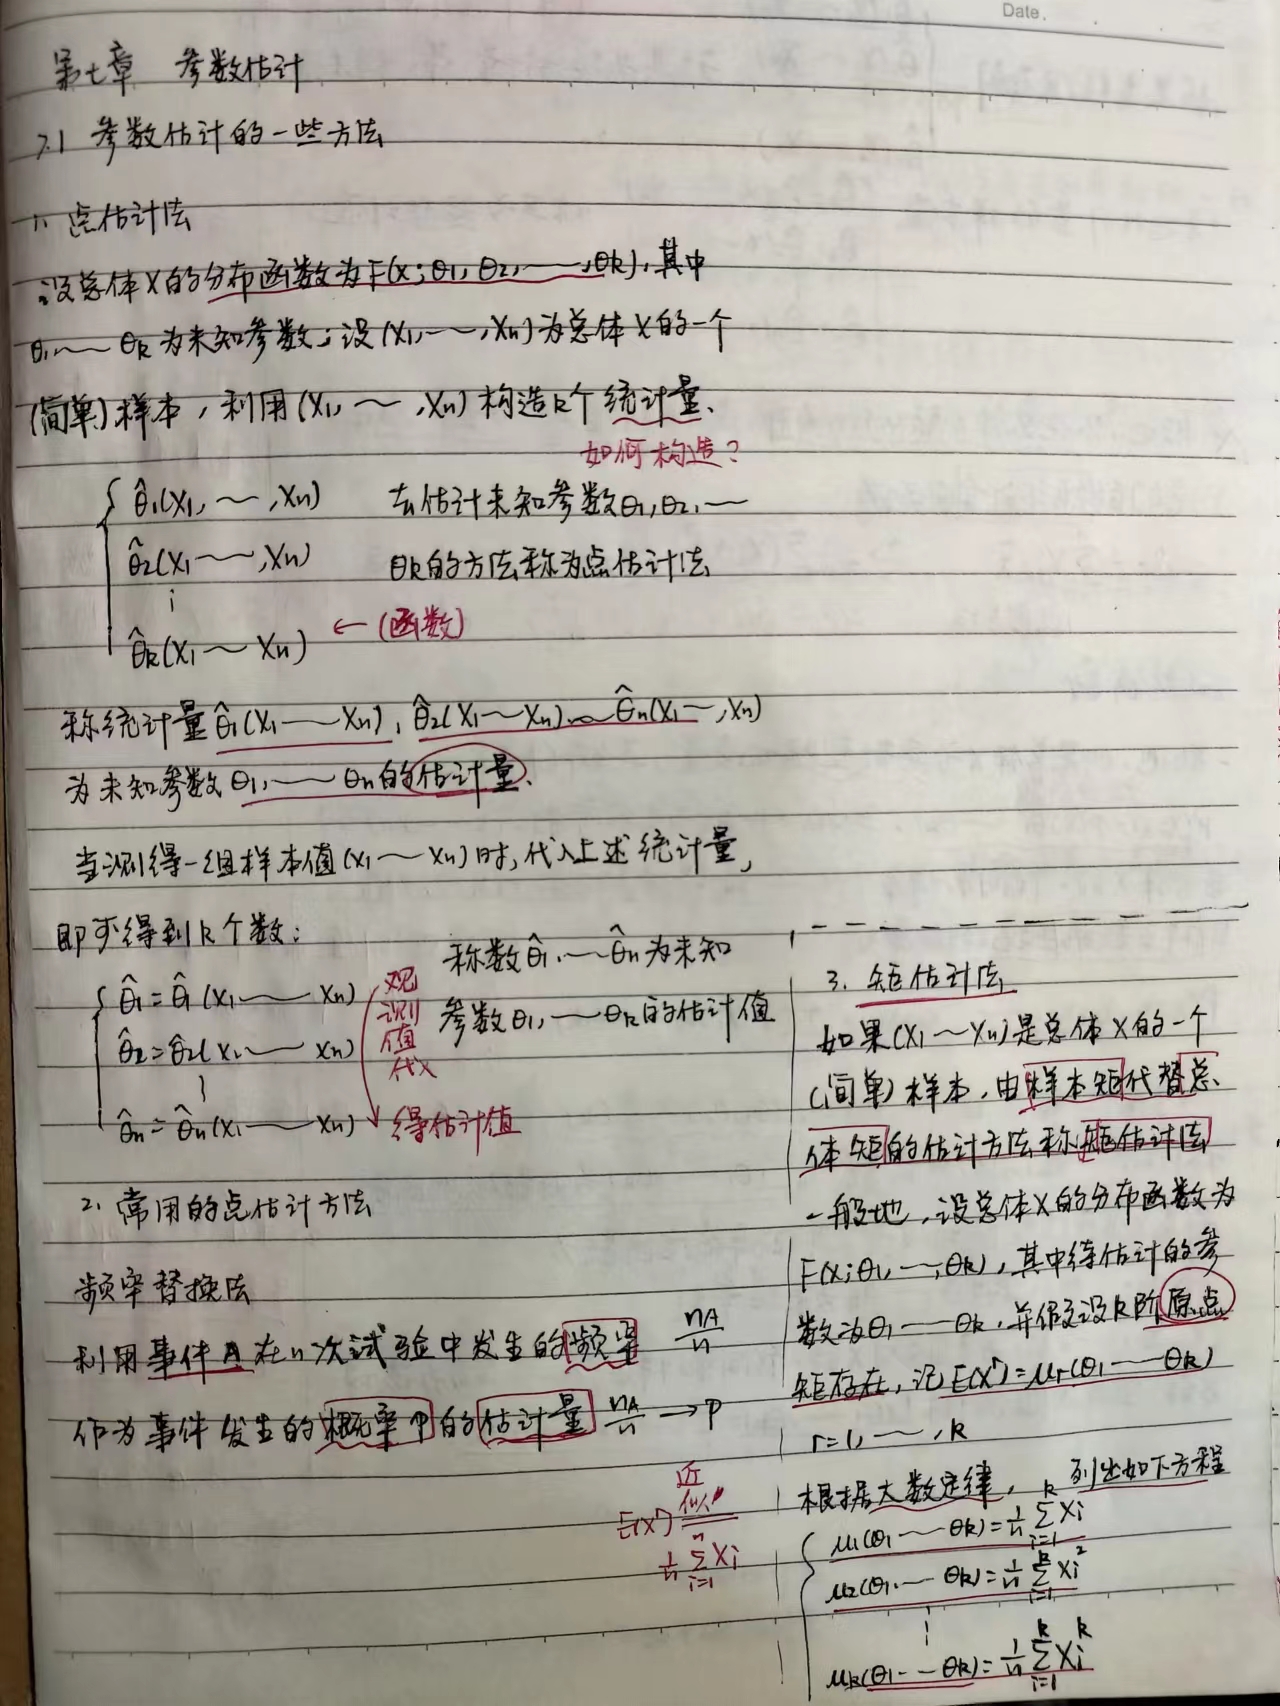 Date.
第七章 参数估计
7.1 参数估计的一些方法
1. 点估计法
设总体X的分布函数为F(x;θ1,θ2,……,θk),其中
θ1,……θk为未知参数;设(X1,……,Xn)为总体X的一个
(简单)样本,利用(X1,～,Xn)构造k个统计量、
如何构造?
θ̂1(X1,～,Xn) 去估计未知参数θ1,θ2,……
θ̂2(X1……,Xn) θk的方法称为点估计法
⋮
θ̂k(X1～Xn) ←(函数)
称统计量θ̂1(X1……Xn),θ̂2(X1～Xn)……θ̂n(X1～,Xn)
为未知参数θ1,……θn的估计量.
当测得一组样本值(x1～xn)时,代入上述统计量,
即可得到k个数:
θ̂1=θ̂1(x1……xn)
θ̂2=θ̂2(x1……xn)
⋮
θ̂n=θ̂n(x1……xn)
观测值代入
得估计值
称数θ̂1,……θ̂n为未知
参数θ1,……θk的估计值
2. 常用的点估计方法
频率替换法
利用事件A在n次试验中发生的频率 nA/n
作为事件发生的概率P的估计量 nA/n → P
3. 矩估计法
如果(X1～Xn)是总体X的一个
(简单)样本,由样本矩代替总
体矩的估计方法称矩估计法
一般地,设总体X的分布函数为
F(x;θ1,…,θk),其中待估计的参
数为θ1……θk,并假设k阶原点
矩存在,记E(X^r)=μr(θ1……θk)
r=1,……,k
根据大数定律, 列出如下方程
μ1(θ1……θk)=1/n ∑_{i=1}^{k} Xi
μ2(θ1……θk)=1/n ∑_{i=1}^{k} Xi^2
⋮
μk(θ1……θk)=1/n ∑_{i=1}^{k} Xi^k
E(X^r) 近似
1/n ∑_{i=1}^{n} Xi